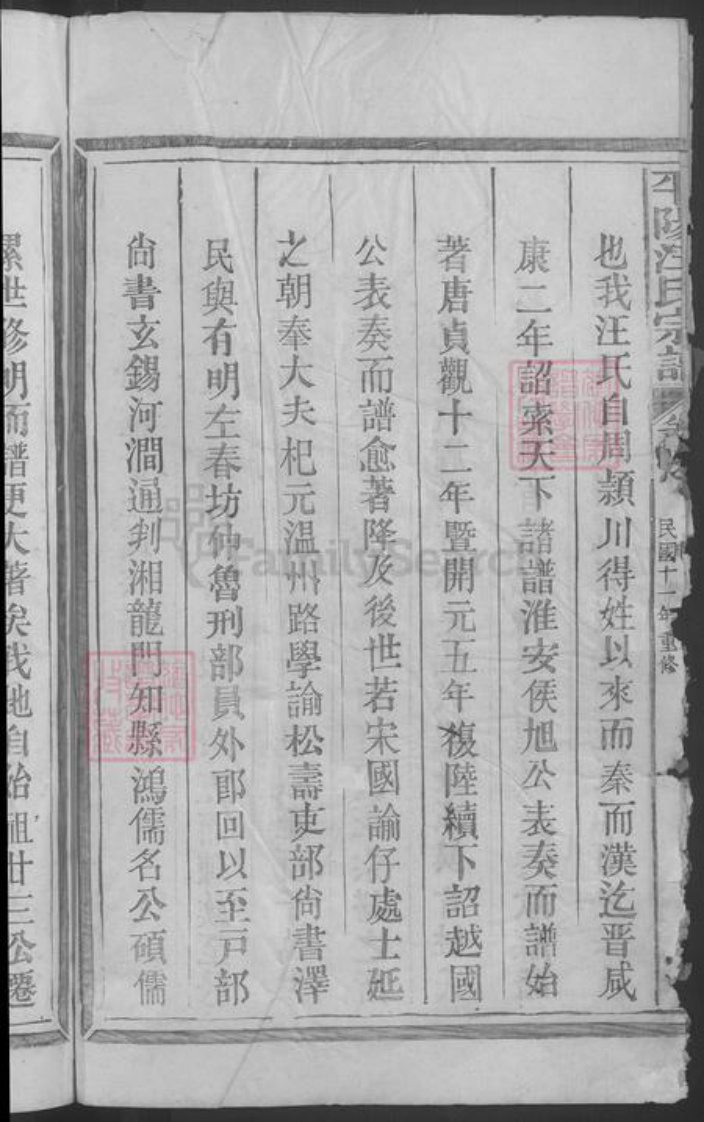 平陽汪氏宗譜
民國十一年重修
也我汪氏自周潁川得姓以來而秦而漢迄晉咸
康二年詔索天下諸譜淮安侯旭公表奏而譜始
著唐貞觀十二年暨開元五年復陸續下詔越國
公表奏而譜愈著降及後世若宋國諭仔處士延
之朝奉大夫杞元温州路學諭松壽吏部尙書澤
民與有明左春坊仲魯刑部員外郎回以至戸部
尙書玄錫河澗通判湘龍門知縣鴻儒名公碩儒
累世修明而譜更大著矣我地自始祖廿三公遷
FamilySearch